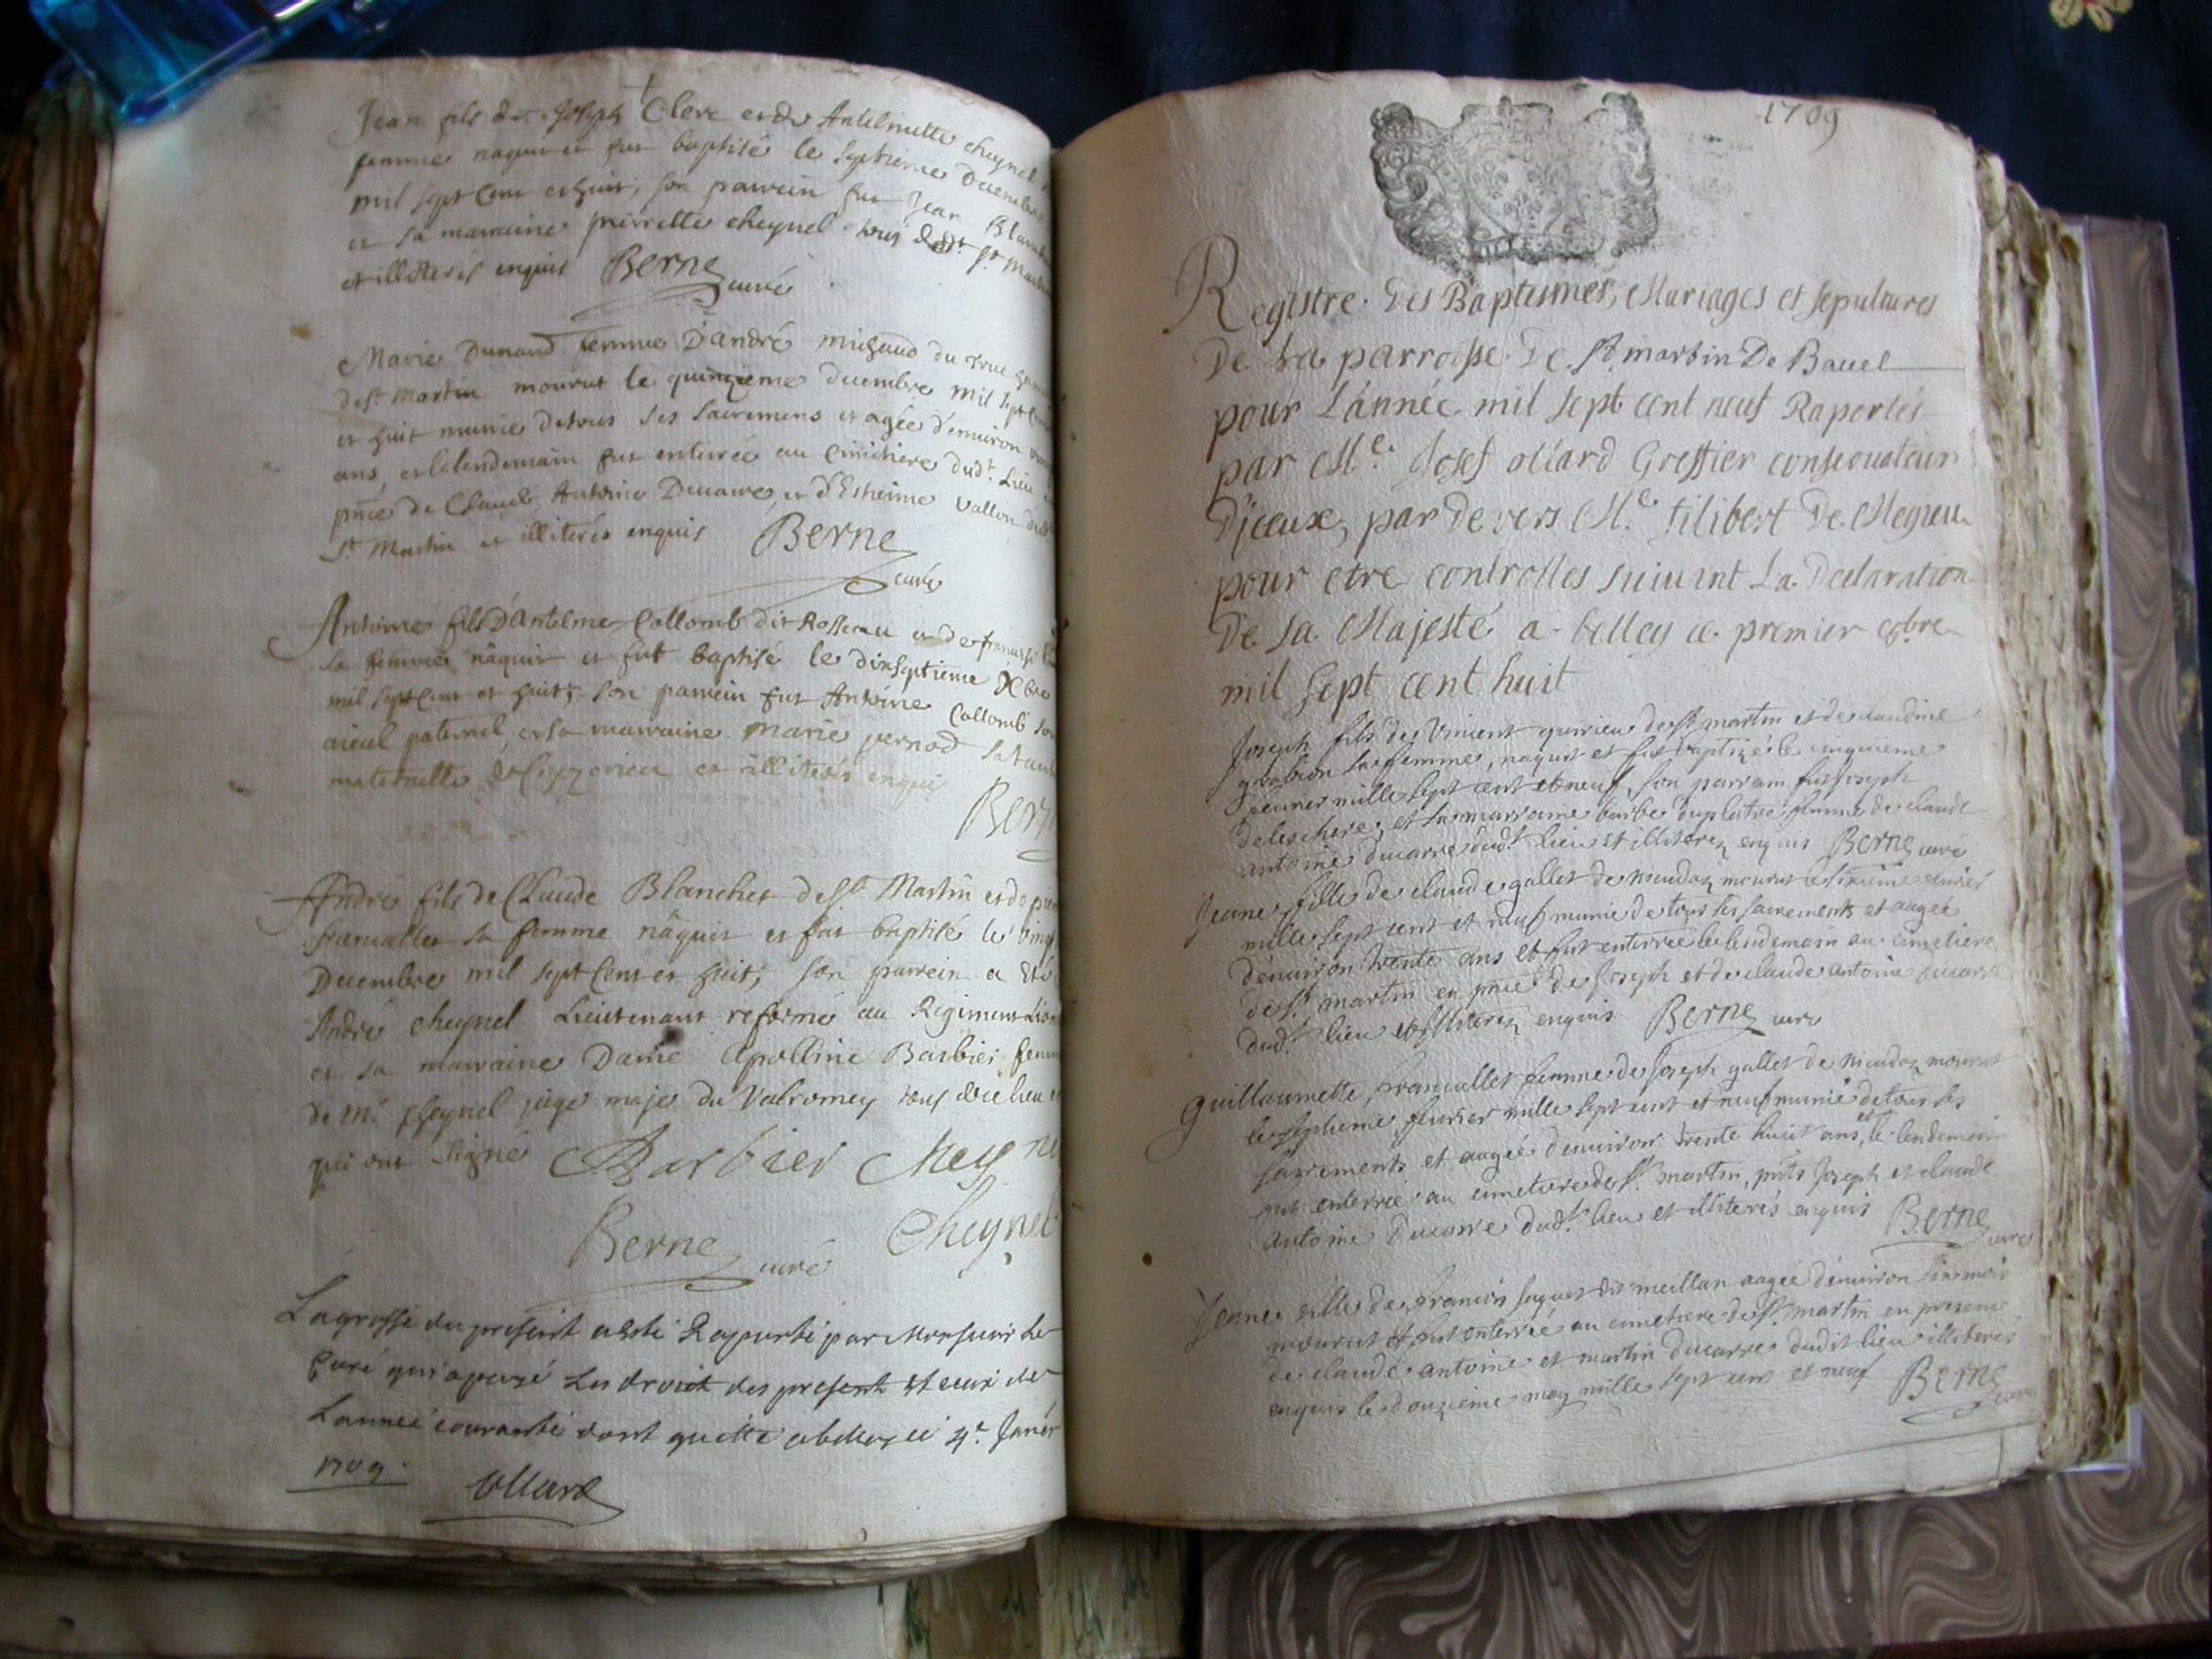 Jean fils de Joseph Clerc et de Antelmette cheynel
femme naquit et fut baptisé le septieme Decembre
mil sept Cent et huit, son parrein fut Jean Blanch
et sa marraine pierrette cheynel tous dudt. St Martin
et illiterés enquis Berne curé
Marie Dunand femme D'andré michaud du
de St Martin mourut le quinzieme decembre mil sept Cent
et huit munie de tous ses sacremens et agée d'environ
ans, et le lendemain fut enterrée au Cimitiere dudt. Lieu
pnce de Claude Antoine Ducarre, et d'Estienne vallon dud
St Martin et illiterés enquis Berne
curé
Antoine fils D'antelme Collomb dit Rosseau et de
sa femme nâquit et fut baptisé le dixseptieme Xbre
mil sept Cent et huit; son parrein fut Antoine Collomb son
aieul paternel, et sa marraine marie pernod sa tante
maternelle de et illiterés enquis
Bern
André fils de Claude Blanchet de St Martin et de
francallet sa femme nâquit et fut baptisé le vingt
Decembre mil sept Cent et huit; son parrein a été
André cheynel Lieutenant reformé au Regiment
et sa marraine Dame Apolline Barbier femme
de Mr. cheynel juge maje du Valromey tous dud lieu et
qui ont signé Barbier Cheyne
Berne curé Cheynel
La grosse du present a esté Raporté par Monsieur le
Curé qui a payé les droict des present et ceux de
Lanneé couranté dont quitte a belley ce 4e. Janer
1709. Ollard
1709
Registre des Baptesmes, Mariages et sepultures
De la parroisse De St. martin De Bavel
pour L'année mil sept cent neuf Raportés
par Me. Josef ollard Greffier conservateur
D'iceux, par devers Me. filibert De Megieu
pour etre controlles suivant La Declaration
De sa Majesté a belley ce premier 8bre
mil sept cent huit
Joseph fils de Vincent de St martin et de claudine
sa femme, naquit et fut baptizé le cinquieme
fevrier mille sept cent et neuf, son parrain fut joseph
et sa marraine barbe duplatre femme de claude
antoine ducarre dudt. lieu et illiterez enquis Berne curé
Jeane fille de claude gallet de nieudaz mourut le sixieme fevrier
mille sept cent et neuf munie de tous ses sacrements et aagée
d'environ trente ans et fut enterrée le lendemain au cimetiere
de St. martin en pnce de Joseph et de claude antoine ducarre
dudt. lieu et illiterez enquis Berne curé
Guillaumette francallet femme de Joseph gallet de nieudaz mourut
le septieme fevrier mille sept cent et neuf munie de tous ses
sacrements et aagée d'environ trente huit ans, et le lendemain
fut enterrée au cimetiere de St. martin, pnts Joseph et claude
antoine ducarre dudt. lieu et illiterés enquis Berne
curé
Jeane fille de francois dit meillan aagée d'environ six mois
mourut et fut enterrée au cimetiere de St. martin en presence
de claude antoine et martin ducarre dudit lieu illiterés
enquis le douzieme may mille sept cent et neuf Berne
curé